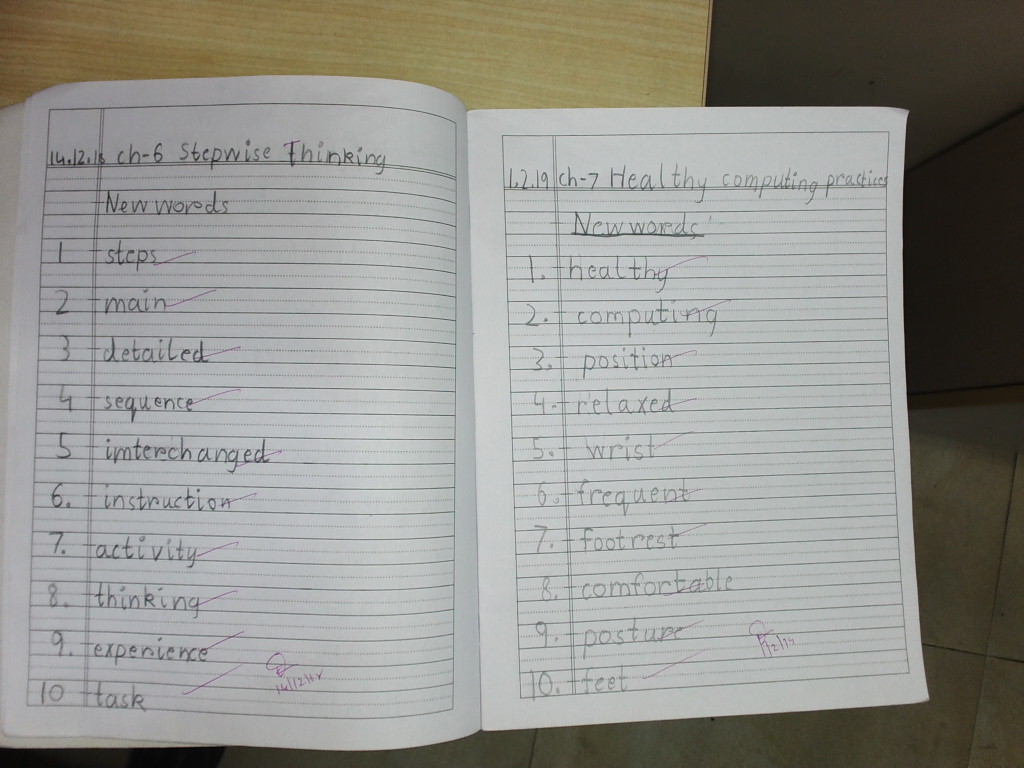 14.12.18 ch-6 Stepwise Thinking
New words
1 steps
2 main
3 detailed
4 sequence
5 imterchanged
6. instruction
7. activity
8. thinking
9. experience
10 task
1.2.19 ch-7 Healthy computing practices
New words
1. healthy
2. computing
3. position
4. relaxed
5. wrist
6. frequent
7. footrest
8. comfortable
9. posture
10. feet